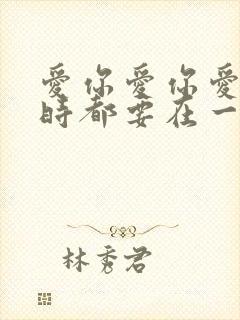 愛你愛你愛
時都要在一
林秀君